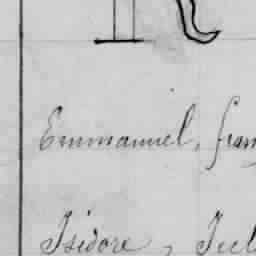 R
Emmanuel, fran
Isidore, Jul